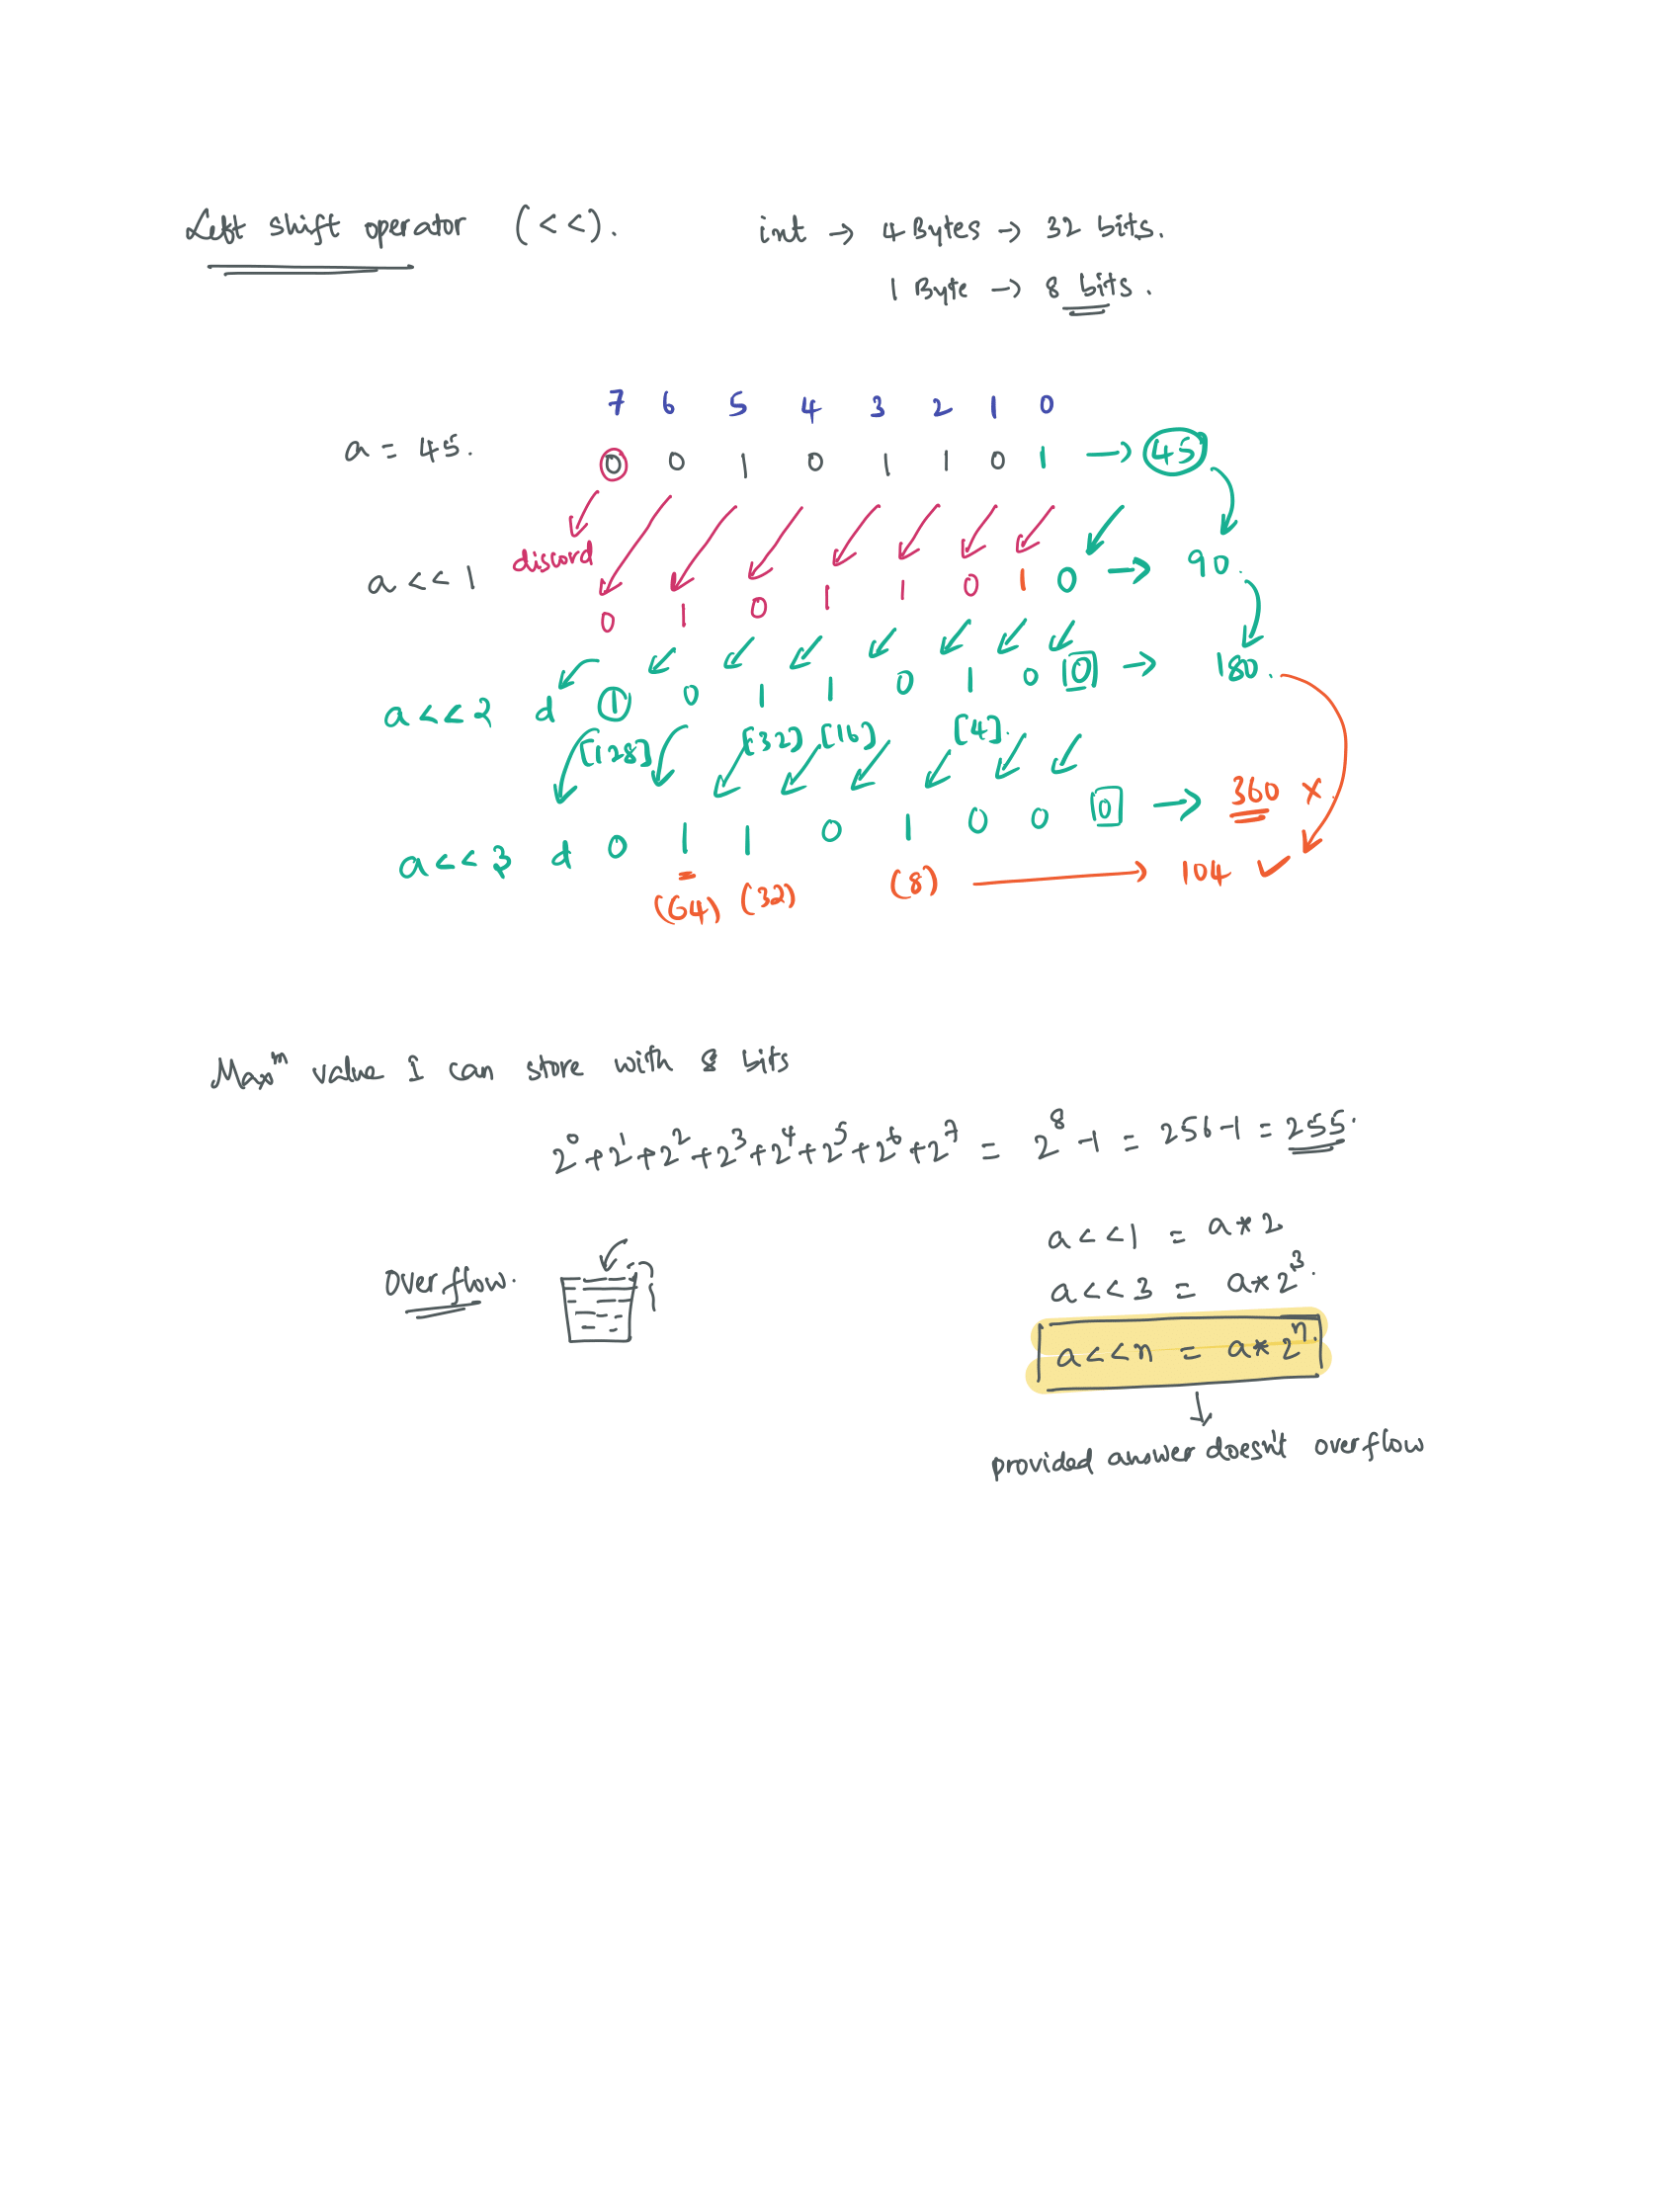 Left shift operator (<<). int → 4 Bytes → 32 bits.
1 Byte → 8 bits.
7 6 5 4 3 2 1 0
a = 45. 0 0 1 0 1 1 0 1 → 45
discord
a << 1 0 1 0 1 1 0 1 0 → 90.
a << 2 d 1 0 1 1 0 1 0 0 → 180.
[128] [32] [16] [4].
a << 3 d 0 1 1 0 1 0 0 0 → 360 x
(64) (32) (8) → 104 ✓
Maxᵐ value I can store with 8 bits
2⁰+2¹+2²+2³+2⁴+2⁵+2⁶+2⁷ = 2⁸-1 = 256-1 = 255.
a<<1 = a*2
Overflow. a<<3 = a*2³.
a<<n = a*2ⁿ.
provided answer doesn't overflow